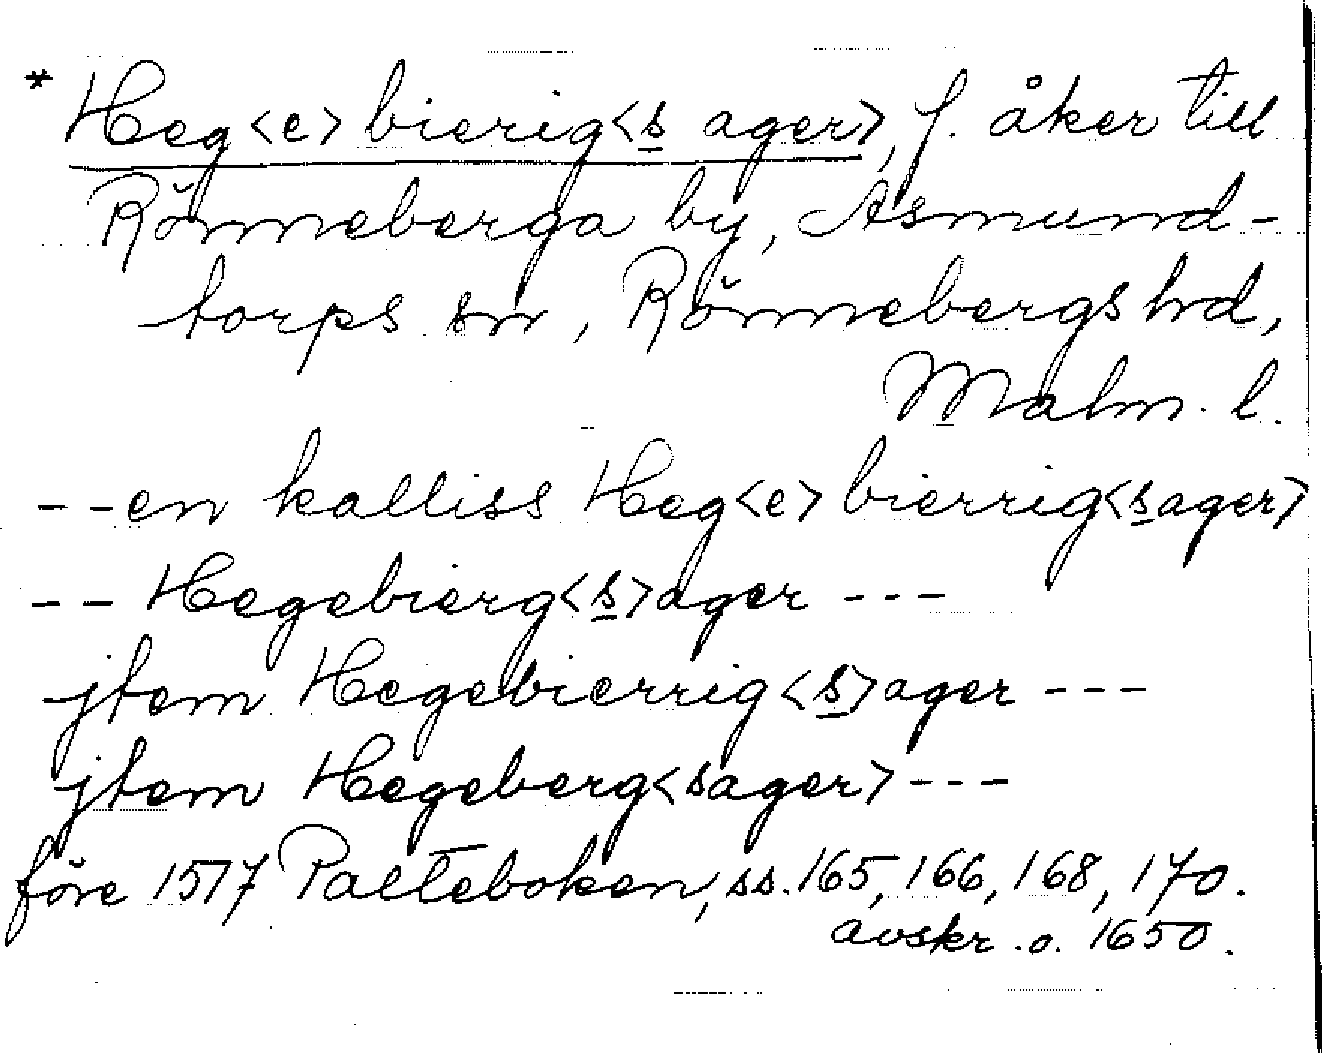 * Heg<e>bierig<s ager>, f. åker till
Rönneberga by, Asmund-
torps sn, Rönnebergs hd,
Malm. l.
--en kalliss Heg<e>bierrig<sager>
-- Hegebierg<s>ager ---
jtem Hegebierrig<s>ager ---
jtem Hegeberg<sager> ---
före 1517 Palteboken, ss. 165, 166, 168, 170.
avskr. o. 1650.